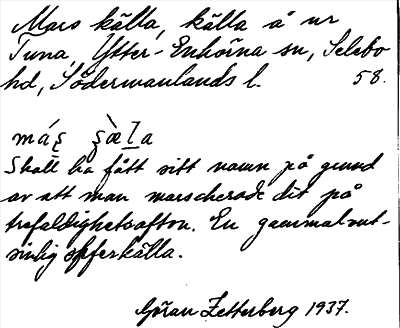 Mars källa, källa å nr
Tuna, Ytter-Enhörna sn, Selebo
hd, Södermanlands l. 58.
máʂ ʂæ̀l̲a
Skall ha fått sitt namn på grund
av att man marscherade dit på
trefaldighetsafton. En gammal vat-
sinlig offerkälla.
Göran Zetterberg 1937.